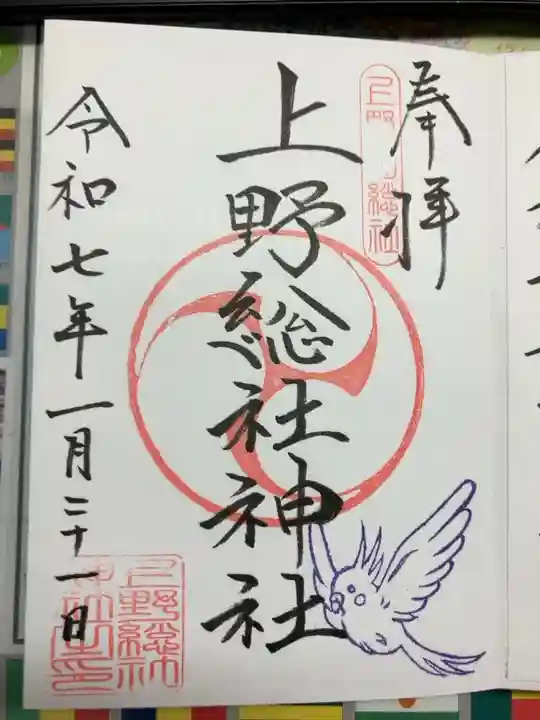 奉拝
上野総社神社
令和七年一月二十一日
上野総社
上野総社
神社之印